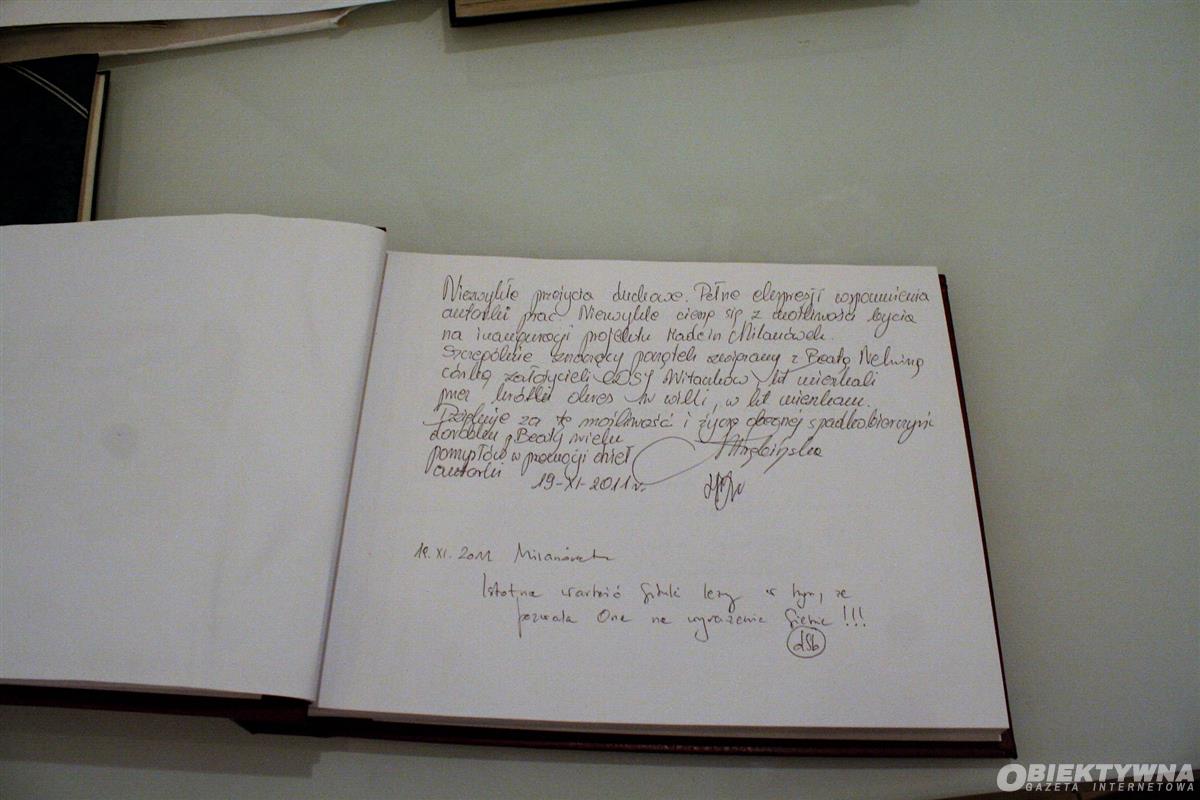 Niezwykłe przeżycia duchowe. Pełne ekspresji wspomnienia
autorki prac. Niezwykle cieszę się z możliwości bycia
na inauguracji projektu Made in Milanówek.
Szczególnie znaczący początek związany z Beatą Nehring
córką założycieli Witaczków, kt mieszkali
przez krótki okres w willi, w kt mieszkam.
Dziękuję za tę możliwość i życzę obecnej spadkobierczyni
dorobku p. Beaty wielu
pomysłów w promocji dzieł
autorki
19-XI-2011 r.
19. XI. 2011 Milanówek
Istotna wartość sztuki leży w tym, że
pozwala Ona na wyrażenie siebie !!!
dSb
OBIEKTYWNA
GAZETA INTERNETOWA